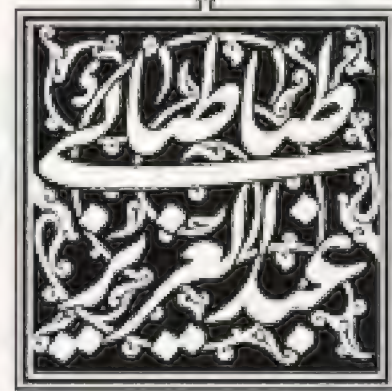 عبدالعزيز
طباطبائی